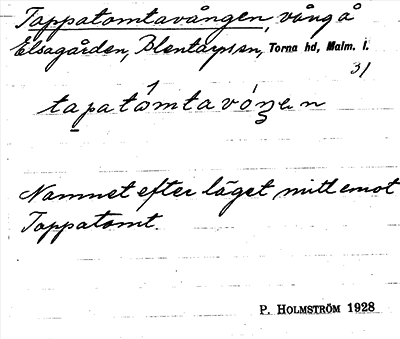 Tappatomtavången, vång å
Elsagården, Blentarpssn, Torna hd, Malm. l.
31
tapatomtavóŋən
Namnet efter läget mitt emot
Tappatomt.
P. HOLMSTRÖM 1928